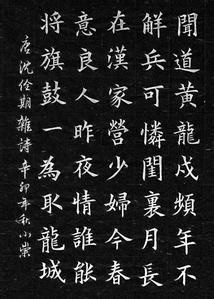 聞道黃龍戍頻年不
解兵可憐閨裏月長
在漢家營少婦今春
意良人昨夜情誰能
将旗鼓一為取龍城
唐沈佺期雜詩辛卯年秋小崇